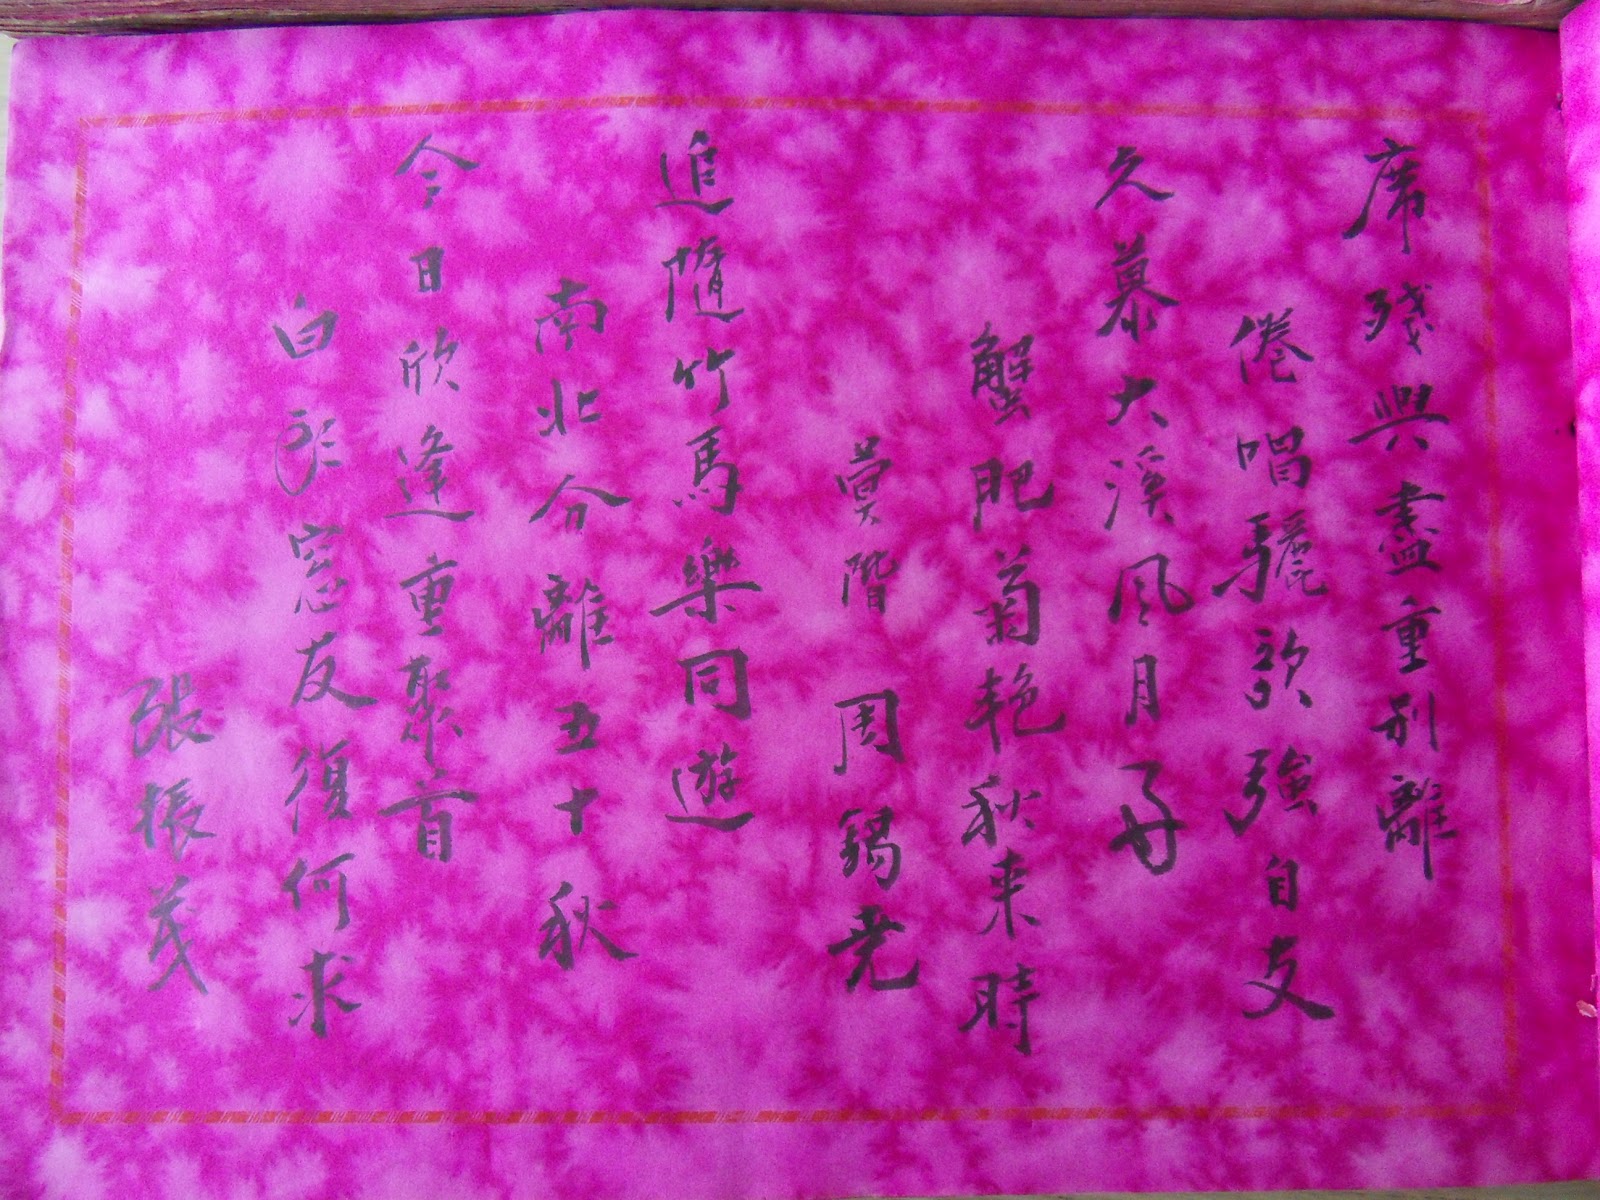 席殘興盡重別離
倦唱驪歌強自支
久慕大溪風月好
蟹肥菊艳秋來時
蓂階 周錫尭
追隨竹馬樂同遊
南北分離五十秋
今日欣逢重聚首
白窓友復何求
張振茂